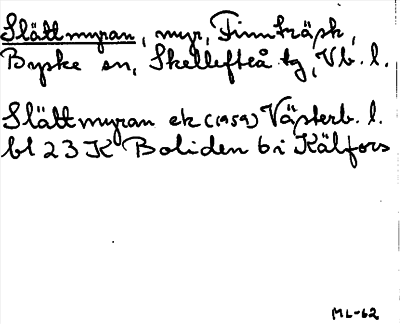 Slättmyran, myr, Finnträsk,
Byske sn, Skellefteå tg, Vb. l.
Slättmyran ek (1959) Västerb. l.
bl 23 K Boliden 6 i Kälfors
ML-62